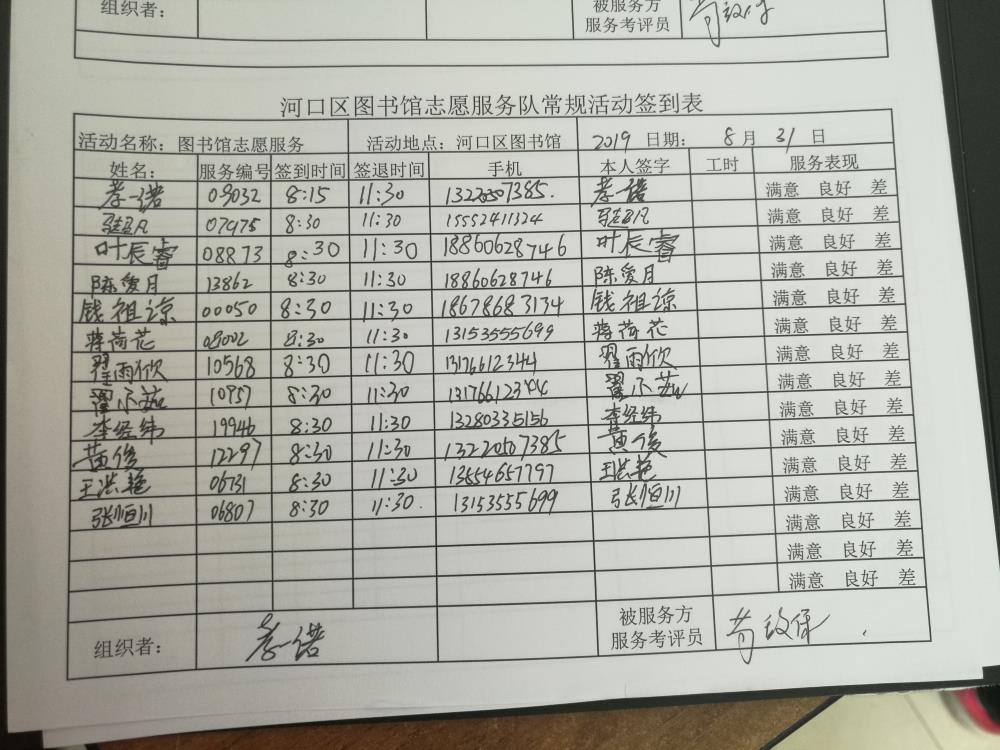 组织者： 被服务方
服务考评员
河口区图书馆志愿服务队常规活动签到表
活动名称：图书馆志愿服务 活动地点：河口区图书馆 2019 日期： 8 月 31 日
姓名： 服务编号 签到时间 签退时间 手机 本人签字 工时 服务表现
李一诺 09032 8:15 11:30 13220507385. 李一诺 满意 良好 差
07975 8:30 11:30 15552411324 满意 良好 差
叶辰睿 08873 8:30 11:30 18860628746 叶辰睿 满意 良好 差
陈爱月 13862 8:30 11:30 18860628746 陈爱月 满意 良好 差
钱祖谅 00050 8:30 11:30 18678683134 钱祖谅 满意 良好 差
蒋荷花 09002 8:30 11:30 13153555699 蒋荷花 满意 良好 差
翟雨欣 10568 8:30 11:30 13176612344 翟雨欣 满意 良好 差
8:30 11:30 13176612344 满意 良好 差
李经纬 19946 8:30 11:30 13280335156 李经纬 满意 良好 差
黄俊 12297 8:30 11:30 13220507385 黄俊 满意 良好 差
王洪艳 06731 8:30 11:30 13554657797 王洪艳 满意 良好 差
张恒川 06807 8:30 11:30. 13153555699 张恒川 满意 良好 差
满意 良好 差
满意 良好 差
满意 良好 差
组织者： 李一诺 被服务方
服务考评员